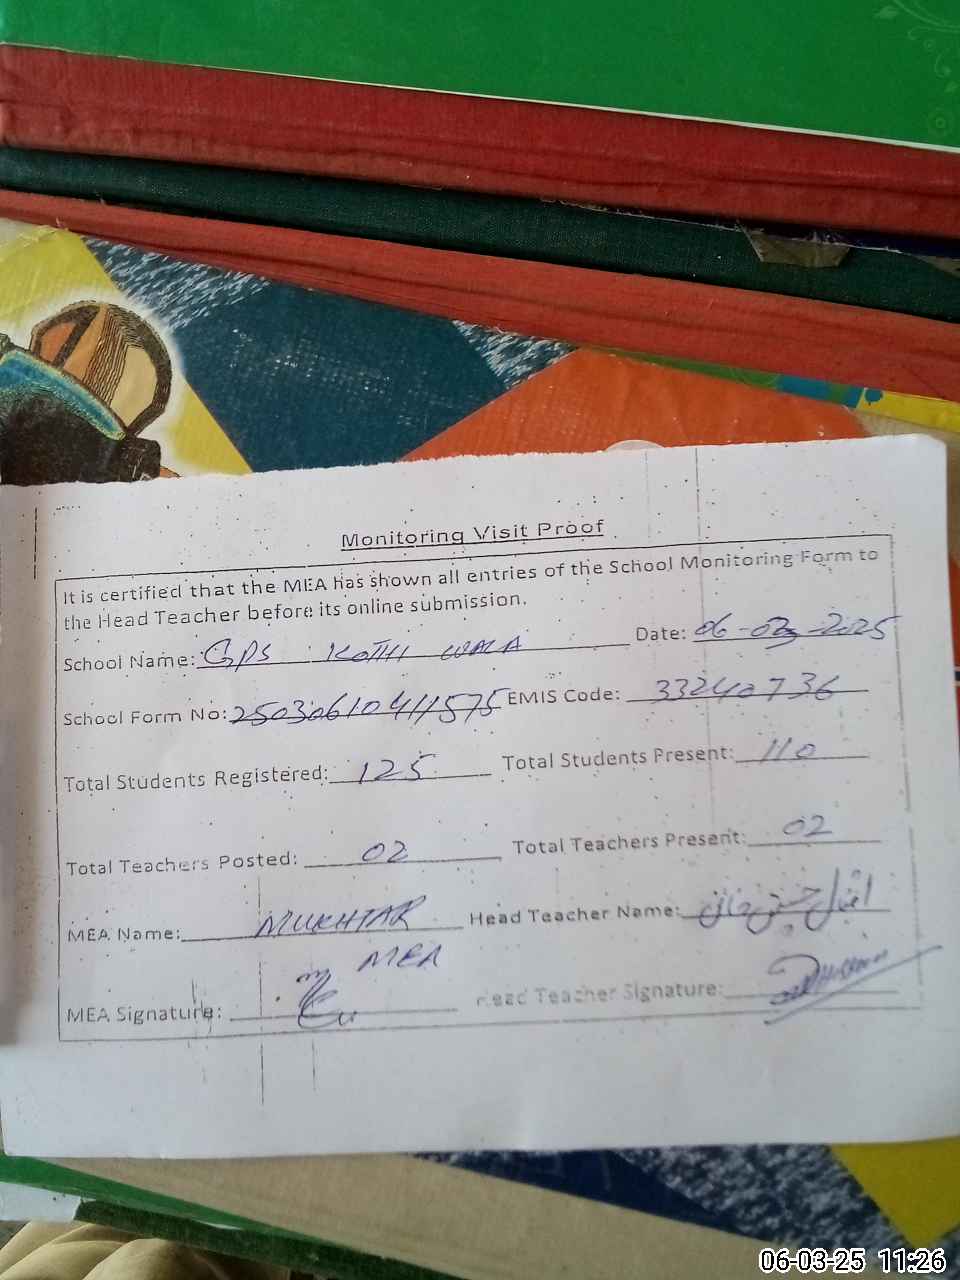 Monitoring Visit Proof
It is certified that the MEA has shown all entries of the School Monitoring Form to
the Head Teacher before its online submission.
School Name: GPS KOTHI WALA Date: 06-03-2025
School Form No: 25030610411575 EMIS Code: 33240736
Total Students Registered: 125 Total Students Present: 110
Total Teachers Posted: 02 Total Teachers Present: 02
MEA Name: MUKHTAR Head Teacher Name:
MEA
MEA Signature: Head Teacher Signature:
06-03-25 11:26